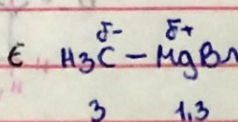 δ- δ+
€ H3C - MgBr
3 1,3